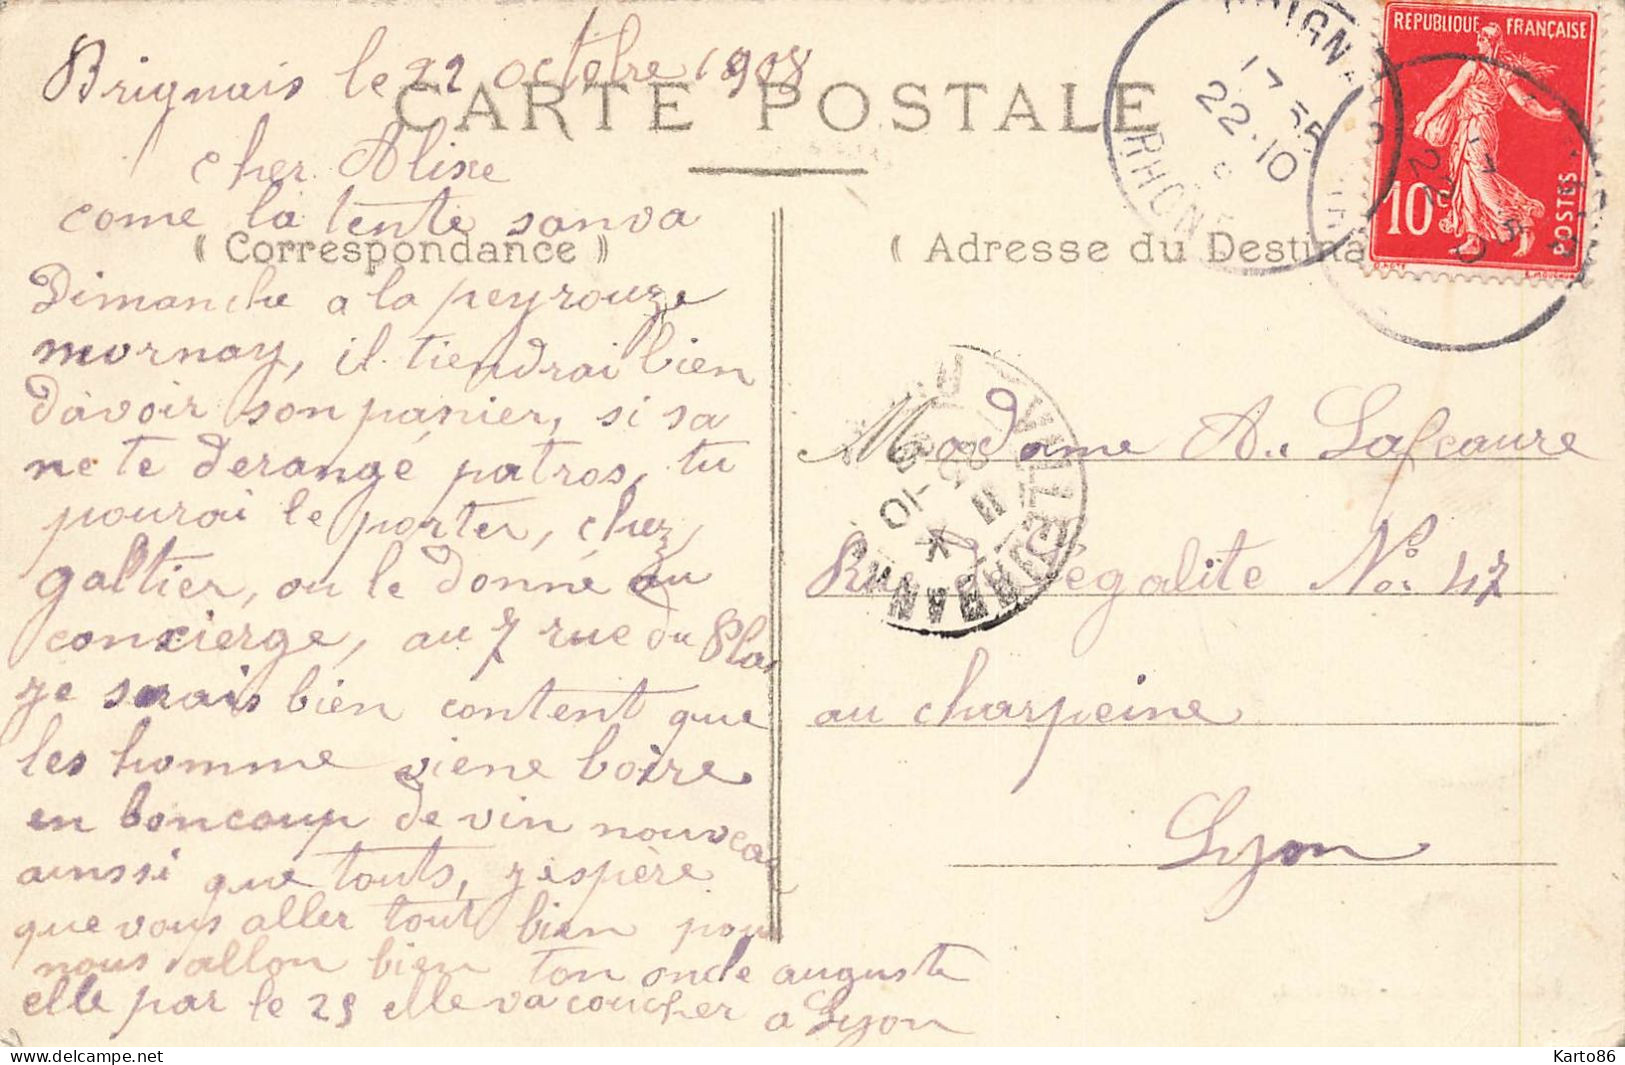 Brignais le 22 octobre 1908
CARTE POSTALE
cher Alixe
come la tente sanva
( Correspondance )
Dimanche a la peyrouze
mornay, il tiendrai bien
d'avoir son panier, si sa
ne te derange patros, tu
pourai le porter, chez
galtier, ou le donné au
concierge, au 7 rue du Plat
je serais bien content que
les homme viene boire
en boncoup de vin nouveau
ainssi que touts, j'espère
que vous aller tout bien pour
nous allon bien ton oncle auguste
elle par le 25 elle va coucher a Lyon
( Adresse du Destina
Madame A. Lafeaure
Rue d l'égalite No. 47
au charpeine
Lyon
REPUBLIQUE FRANÇAISE
10c
POSTES
17 55
22-10
RHONE
VILLEURBANNE
Karto86
delcampe.net